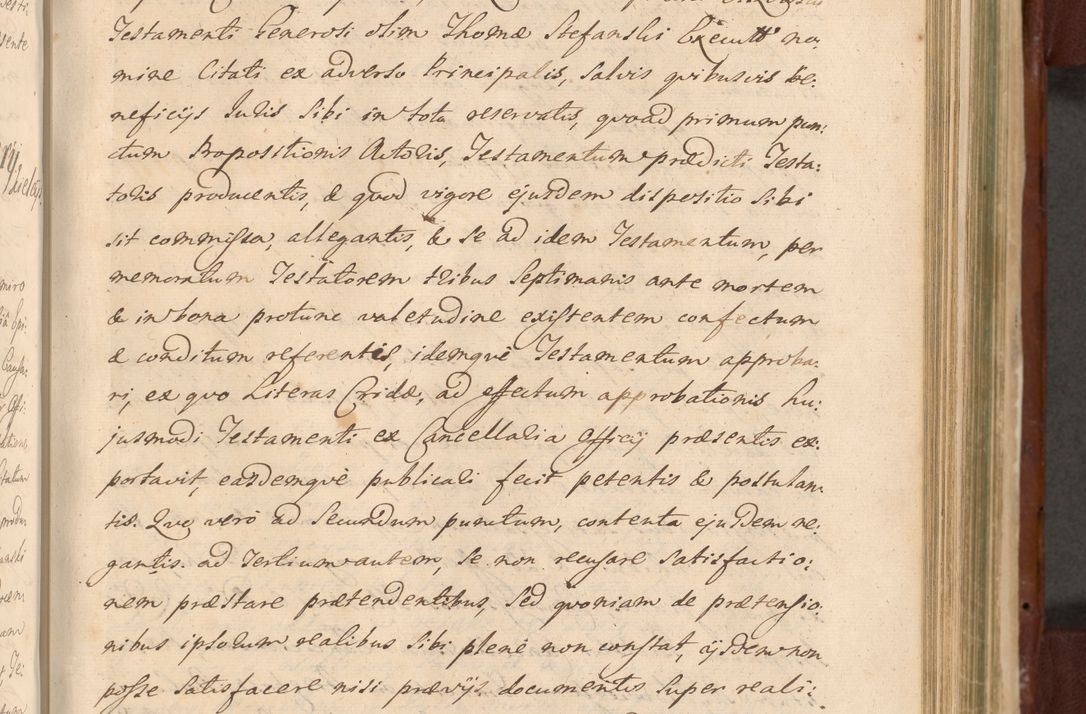 Testamenti Generosi olim Thomæ Stefanski Execut[oris] no:
mine Citati ex adverso Principalis, Salvis quibusvis be:
neficijs Juris Sibi in toto reservatis, quoad primum pun:
ctum Propositionis Actoris, Testamentum prædicti Testa:
toris producentis, & quod vigore ejusdem dispositio Sibi
sit commissa, allegantis, & Se ad idem Testamentum, per
memoratum Testatorem tribus Septimanis ante mortem
& in bona protunc valetudine existentem confectum
& conditum referentis, idemque Testamentum approba:
ri, ex quo Literas Cridæ, ad effectum approbationis hu:
jusmodi Testamenti ex Cancellaria Officij præsentis ex:
portavit, easdemque publicari fecit petentis & postulan:
tis. Quo vero ad Secundum punctum, contenta ejusdem ne:
gantis. ad Tertium autem, Se non recusare Satisfactio:
nem præstare prætendentibus, Sed quoniam de prætensio:
nibus ipsorum realibus Sibi plene non constat, ijsdem non
posse Satisfacere nisi prævijs documentis Super reali: